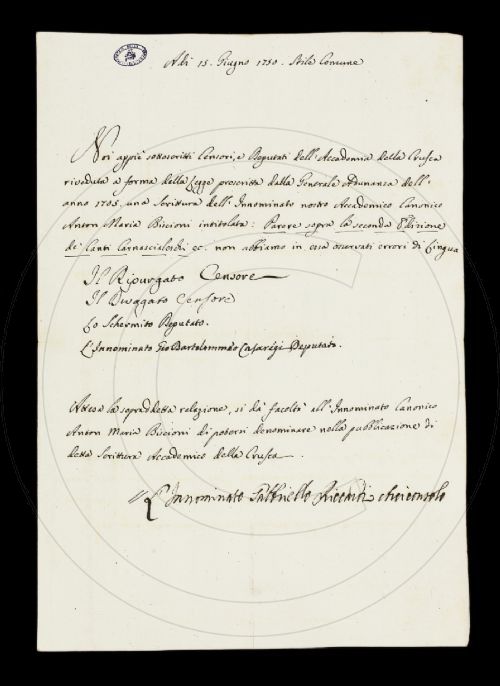 Adì 15. Giugno 1750. Stile Comune
Noi appiè sottoscritti Censori, e Deputati dell'Accademia della Crusca
riveduta a forma della Legge prescritta dalla Generale Adunanza dell'
anno 1705. una Scrittura dell'Innominato nostro Accademico Canonico
Anton Maria Biscioni intitolata: Parere sopra la seconda Edizione
de' Canti Carnascialeschi ec. non abbiamo in essa osservati errori di Lingua
Il Ripurgato Censore
Il Censore
Lo Schermito Deputato.
L'Innominato Gio Bartolommeo Casaregi Deputato.
Attesa la sopraddetta relazione, si dà facoltà all'Innominato Canonico
Anton Maria Biscioni di potersi denominare nella pubblicazione di
detta Scrittura Accademico della Crusca.
L'Innominato Gabbriello Riccardi Arciconsolo